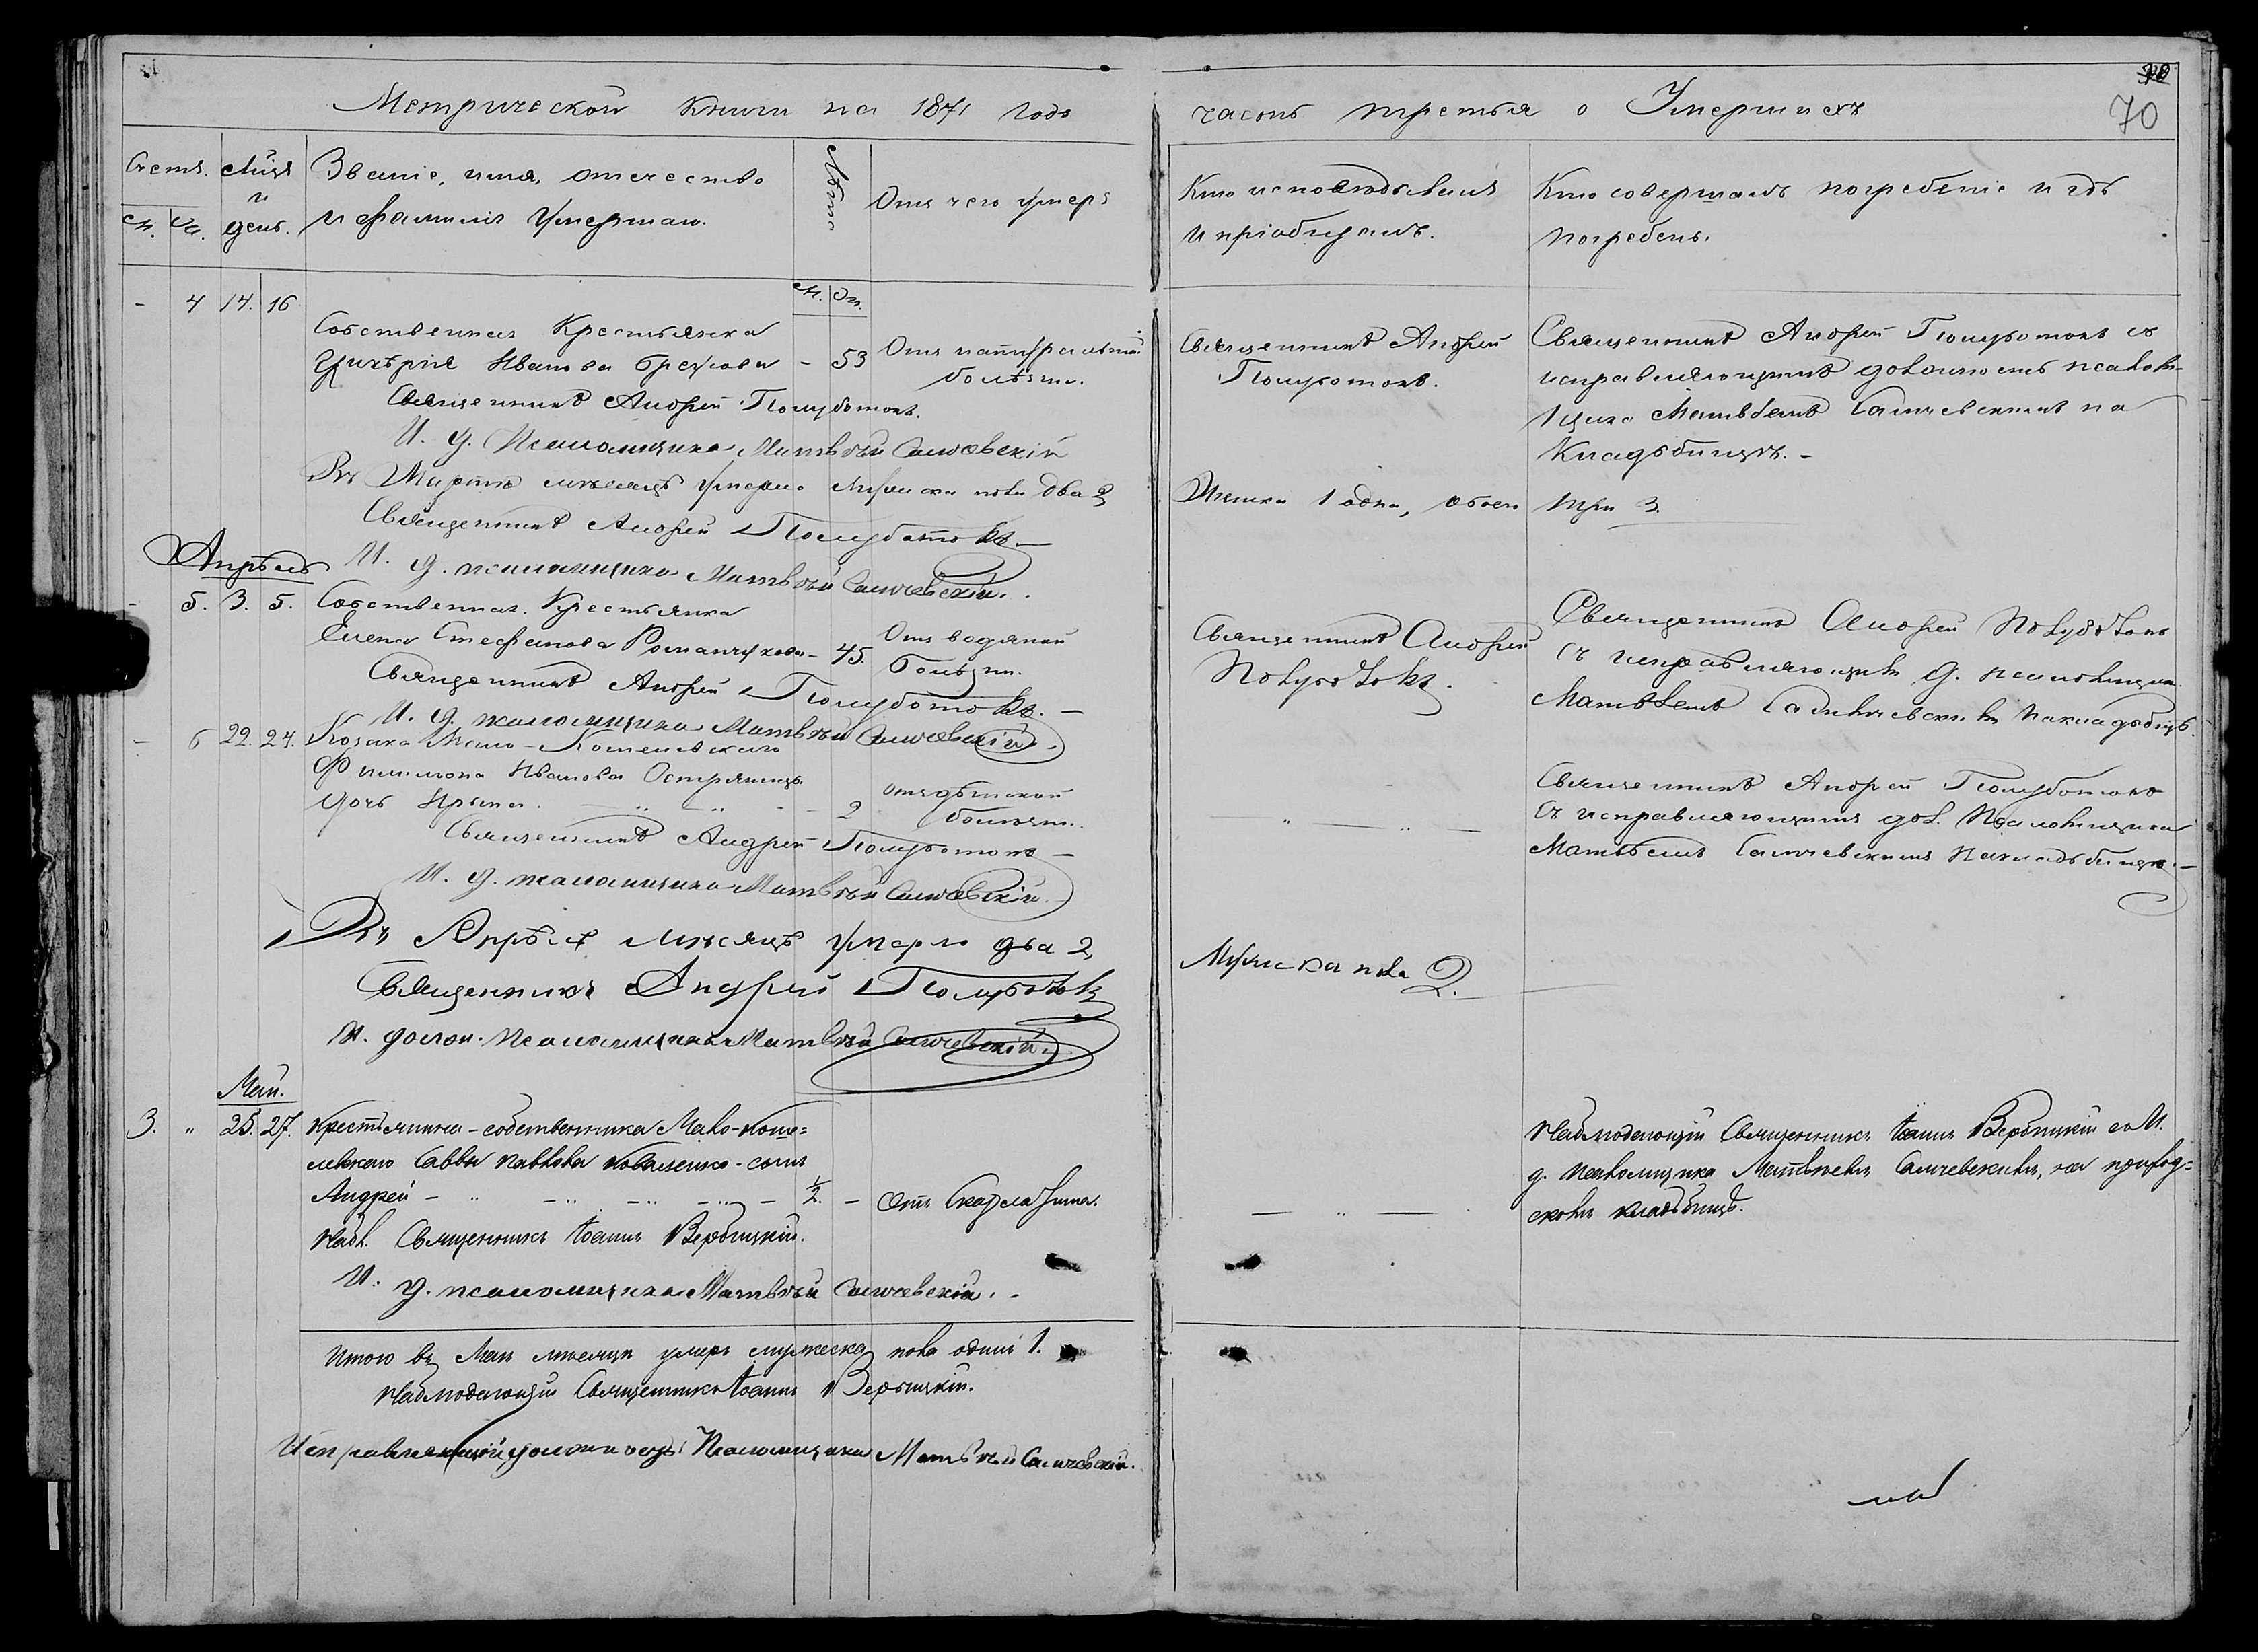 Метрической книги на 1871 годъ
часть третья о Умершихъ
70
Счетъ.
м. ж.
Мѣсяцъ
и
день.
Званіе, имя, отечество
и фамилія умершаго.
Лѣта
м. ж.
Отъ чего умеръ
Кто исповѣдывалъ
и пріобщалъ.
Кто совершалъ погребеніе и гдѣ
погребенъ.
- 4 14. 16
Собственная Крестьянка
Иванова - 53
Отъ натуральной
болѣзни.
Священникъ Андрей Полуботокъ.
И. д. Псаломщика Матвѣй Самчевскій
Священникъ Андрей
Полуботокъ.
Священникъ Андрей Полуботокъ съ
исправляющимъ должность псалом-
щика Матвѣемъ Самчевскимъ на
Кладбищѣ. -
Въ Мартѣ мѣсяцѣ умерло Мужеска пола два 2
Женска 1 одна, обоего три 3.
Священникъ Андрей Полуботокъ. —
И. д. псаломщика Матвѣй Самчевскій.
Апрѣль
- 5. 3. 5. Собственная Крестьянка
Елена Стефанова Романчукова - 45.
Отъ водяной
болѣзни.
Священникъ Андрей Полуботокъ. —
И. д. псаломщика Матвѣй Самчевскій.
Священникъ Андрей
Полуботокъ.
Священникъ Андрей Полуботокъ
съ исправляющимъ д. псаломщика
Матвѣемъ Самчевскимъ на кладбищѣ.
- 6 22. 24. Козака Мало-Кошелевскаго
Филимона Иванова Остряницы
дочь Ирина. 2
Отъ дѣтской
болѣзни.
Священникъ Андрей Полуботокъ —
И. д. псаломщика Матвѣй Самчевскій.
Священникъ Андрей Полуботокъ
съ исправляющимъ дол. Псаломщика
Матвѣемъ Самчевскимъ на кладбищѣ. —
Въ Апрѣлѣ мѣсяцѣ умерло два 2,
Мужска пола 2.
Священникъ Андрей Полуботокъ
И. должн. Псаломщика Матвѣй Самчевскій.
Май.
3. „ 25. 27. Крестьянина-собственника Мало-Коше=
левскаго Саввы Павлова Коваленка - сынъ
Андрей - 1/2. -
Отъ Скарлатина.
Набл. Священникъ Іоаннъ Вербицкій.
И. д. псаломщика Матвѣй Самчевскій.
Наблюдающій Священникъ Іоаннъ Вербицкій съ И.
д. псаломщика Матвѣемъ Самчевскимъ, на приход=
скомъ кладбищѣ.
Итого въ Маѣ мѣсяцѣ умеръ мужеска пола одинъ 1.
Наблюдающій Священникъ Іоаннъ Вербицкій.
Исправляющій должность Псаломщика Матвѣй Самчевскій.